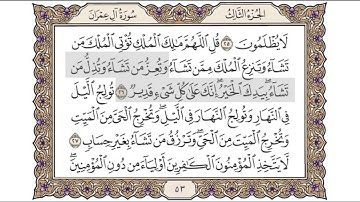 سُورَةُ آلِ عِمْرَانَ
الجُزْءُ الثَّالِثُ
لَا يُظْلَمُونَ ۝٢٥ قُلِ ٱللَّهُمَّ مَـٰلِكَ ٱلْمُلْكِ تُؤْتِى ٱلْمُلْكَ مَن
تَشَآءُ وَتَنزِعُ ٱلْمُلْكَ مِمَّن تَشَآءُ وَتُعِزُّ مَن تَشَآءُ وَتُذِلُّ مَن
تَشَآءُ ۖ بِيَدِكَ ٱلْخَيْرُ ۖ إِنَّكَ عَلَىٰ كُلِّ شَىْءٍ قَدِيرٌ ۝٢٦ تُولِجُ ٱلَّيْلَ
فِى ٱلنَّهَارِ وَتُولِجُ ٱلنَّهَارَ فِى ٱلَّيْلِ ۖ وَتُخْرِجُ ٱلْحَىَّ مِنَ ٱلْمَيِّتِ
وَتُخْرِجُ ٱلْمَيِّتَ مِنَ ٱلْحَىِّ ۖ وَتَرْزُقُ مَن تَشَآءُ بِغَيْرِ حِسَابٍ ۝٢٧
لَّا يَتَّخِذِ ٱلْمُؤْمِنُونَ ٱلْكَـٰفِرِينَ أَوْلِيَآءَ مِن دُونِ ٱلْمُؤْمِنِينَ ۖ
٥٣